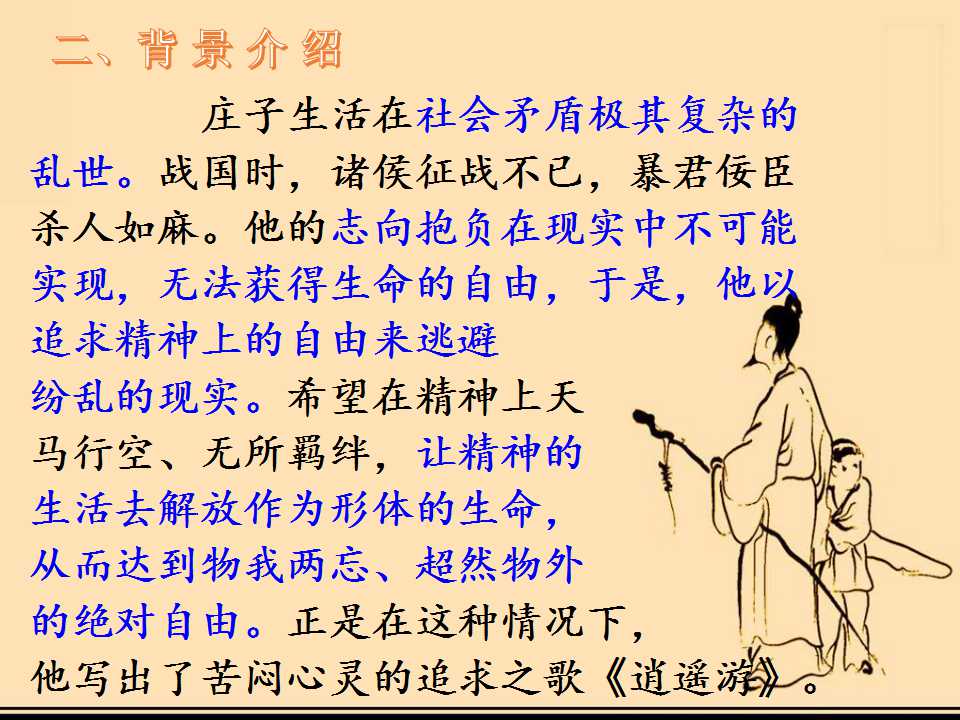 二、背景介绍
庄子生活在社会矛盾极其复杂的
乱世。战国时，诸侯征战不已，暴君佞臣
杀人如麻。他的志向抱负在现实中不可能
实现，无法获得生命的自由，于是，他以
追求精神上的自由来逃避
纷乱的现实。希望在精神上天
马行空、无所羁绊，让精神的
生活去解放作为形体的生命，
从而达到物我两忘、超然物外
的绝对自由。正是在这种情况下，
他写出了苦闷心灵的追求之歌《逍遥游》。